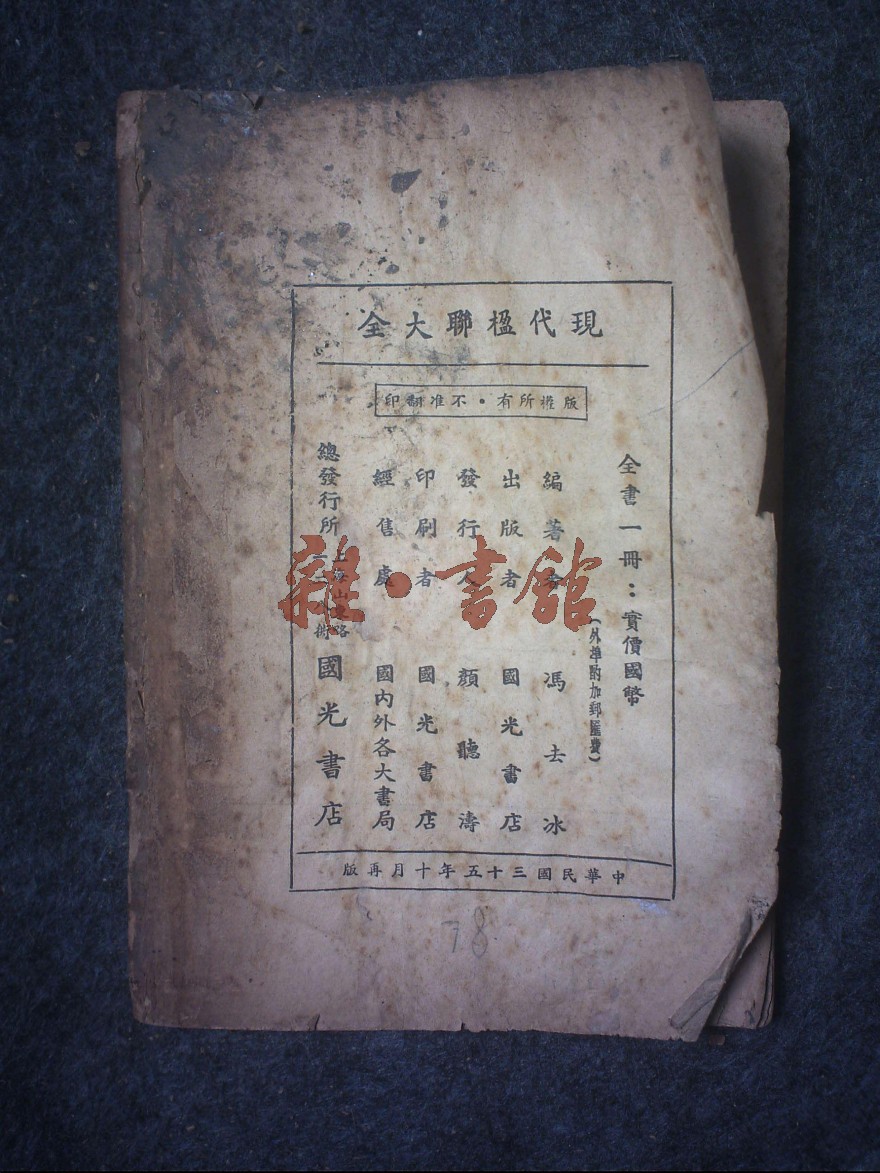 現代楹聯大全
版權所有・不准翻印
全書一冊：實價國幣
（外埠酌加郵匯費）
編著者 馮去冰
出版者 國光書店
發行人 顏聽濤
印刷者 國光書店
經售處 國內外各大書局
總發行所 上海山 路 國光書店
中華民國三十五年十月再版
78
雜・書館